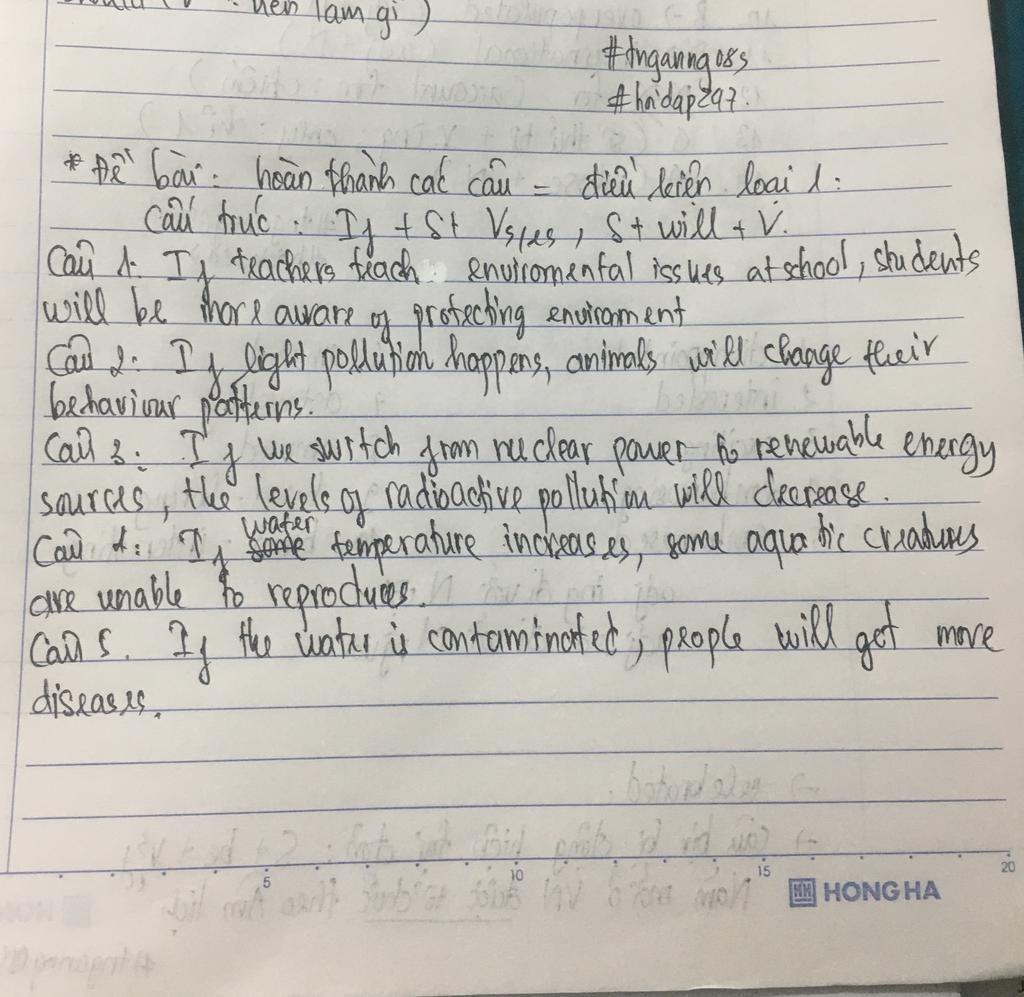 nên làm gì )
#tnganng08s
#hỏidap297.
* Đề bài: hoàn thành các câu = điều kiện loại 1:
Cấu trúc: If + S + Vs/es, S + will + V.
Câu 1: If teachers teach enviromental issues at school, students
will be more aware of protecting environment
Câu 2: If light pollution happens, animals will change their
behaviour patterns.
Câu 3: If we switch from nuclear power to renewable energy
sources, the levels of radioactive pollution will decrease.
water
Câu 4: If some temperature increases, some aquatic creatures
are unable to reproduces.
Câu 5. If the water is contaminated, people will get more
diseases.
5 10 15 20
HONG HA